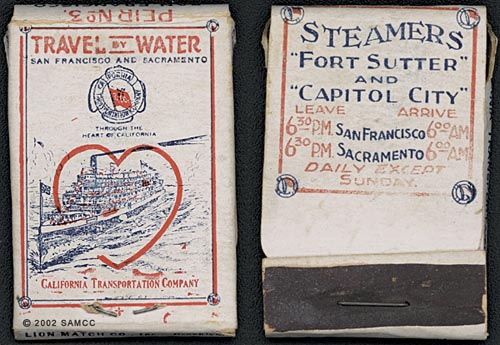 PEIR No 3.
TRAVEL BY WATER
SAN FRANCISCO AND SACRAMENTO
CALIFORNIA
THROUGH THE
HEART OF CALIFORNIA
CALIFORNIA TRANSPORTATION COMPANY
© 2002 SAMCC
LION MATCH CO.
STEAMERS
"FORT SUTTER"
AND
"CAPITOL CITY"
LEAVE ARRIVE
6:30 P.M. SAN FRANCISCO 6:00 AM.
6:30 P.M. SACRAMENTO 6:00 AM.
DAILY EXCEPT
SUNDAY.